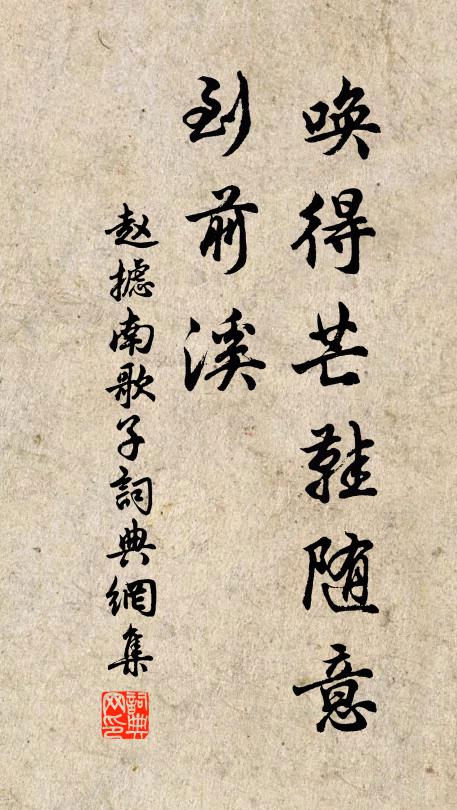 喚得芒鞋随意
到前溪
赵摅南歌子詞典網集
詞典网印